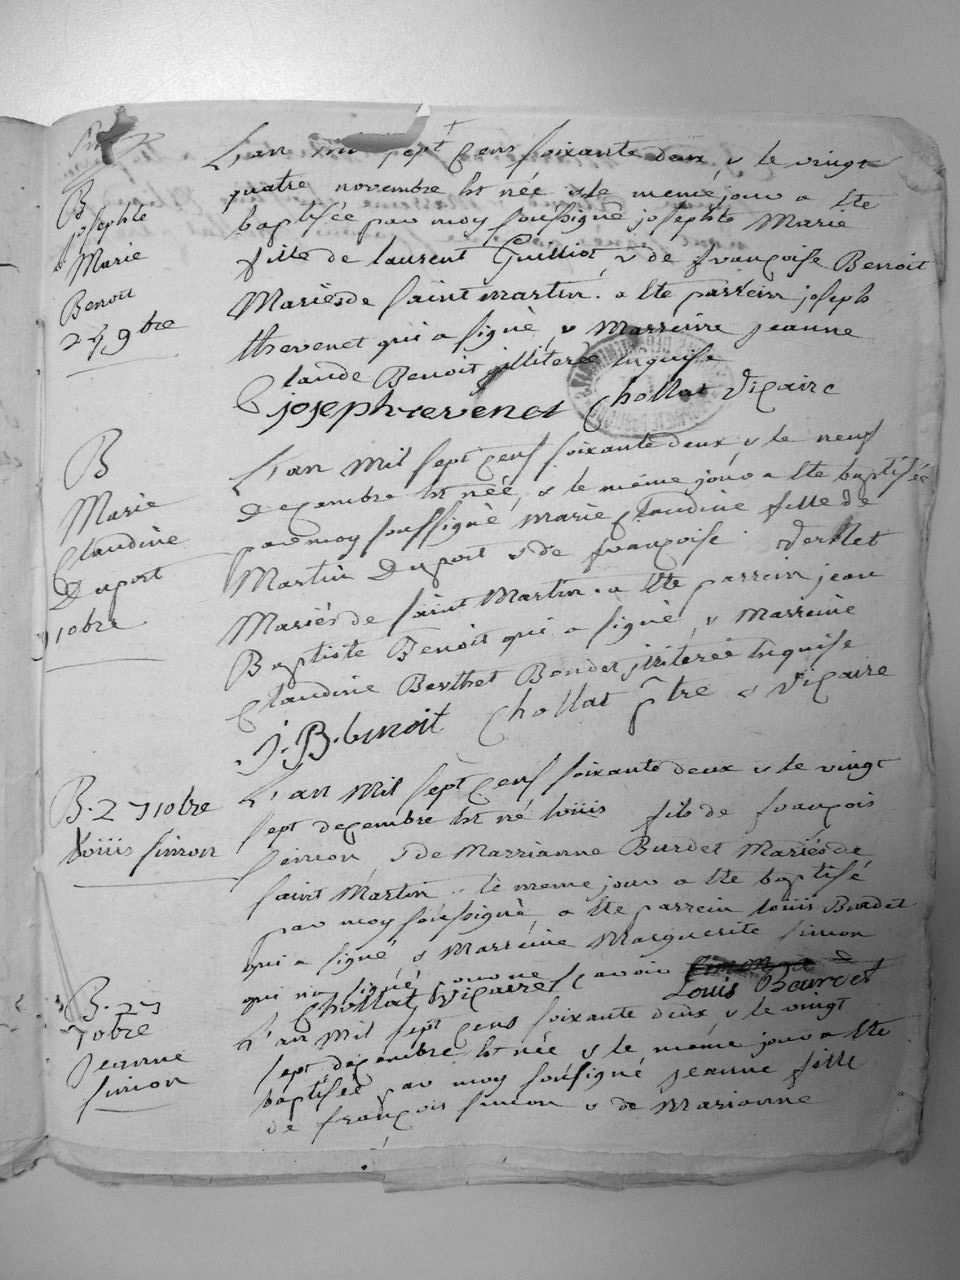 B
josephte
Marie
Benoit
24 9bre
L'an mil sept cens soixante deux & le vingt
quatre novembre Est née & le meme jour a Eté
baptisée par moy soussigné josephte Marie
fille de laurent Guilliot & de françoise Benoit
Mariés de saint martin. a Eté parrein joseph
thevenet qui a signé, & Marreine jeanne
Claude Benoit illiterée Enquise
joseph tevenet Chollat Vicaire
B
Marie
Claudine
Duport
9 10bre
L'an Mil sept cens soixante deux & le neuf
Decembre Est née, & le même jour a Eté baptisée
par moy soussigné marie Claudine fille de
Martin Duport & de françoise Verllet
Mariés de saint Martin. a Eté parrein jean
Baptiste Benoit qui a signé, & Marreine
Claudine Berthet Bender illiterée Enquise
J. B. benoit Chollat ptre & Vicaire
B. 27 10bre
loüis simon
L'an Mil sept cens soixante deux & le vingt
sept decembre Est né loüis fils de françois
simon & de Marrianne Burdet Mariés de
saint Martin. le meme jour a Eté baptisé
par moy soussigné, a Eté parrein loüis Burdet
qui a signé & Marreine Marguerite simon
qui n'a signé pour ne scavoir
Chollat Vicaire Louis Bourdet
B. 27
10bre
Jeanne
simon
L'an Mil sept cens soixante deux & le vingt
sept decembre Est née & le même jour a Eté
baptisée par moy sousigné jeanne fille
de françois simon & de Marianne